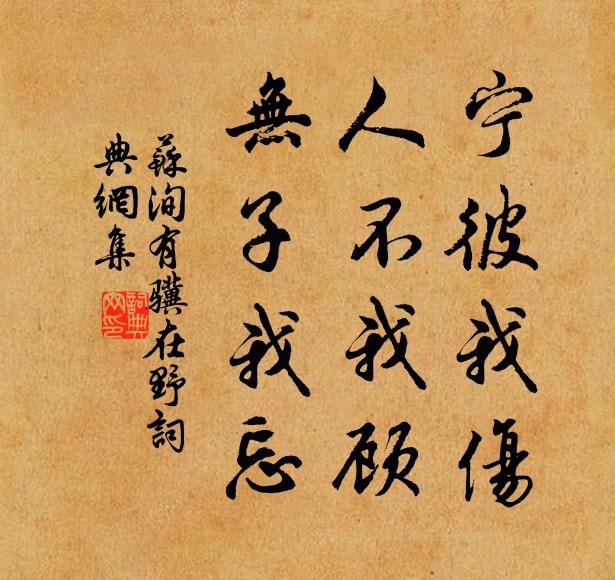 宁彼我傷
人不我顾
無子我忘
蘇洵有驥在野詞
典網集
詞典
网印